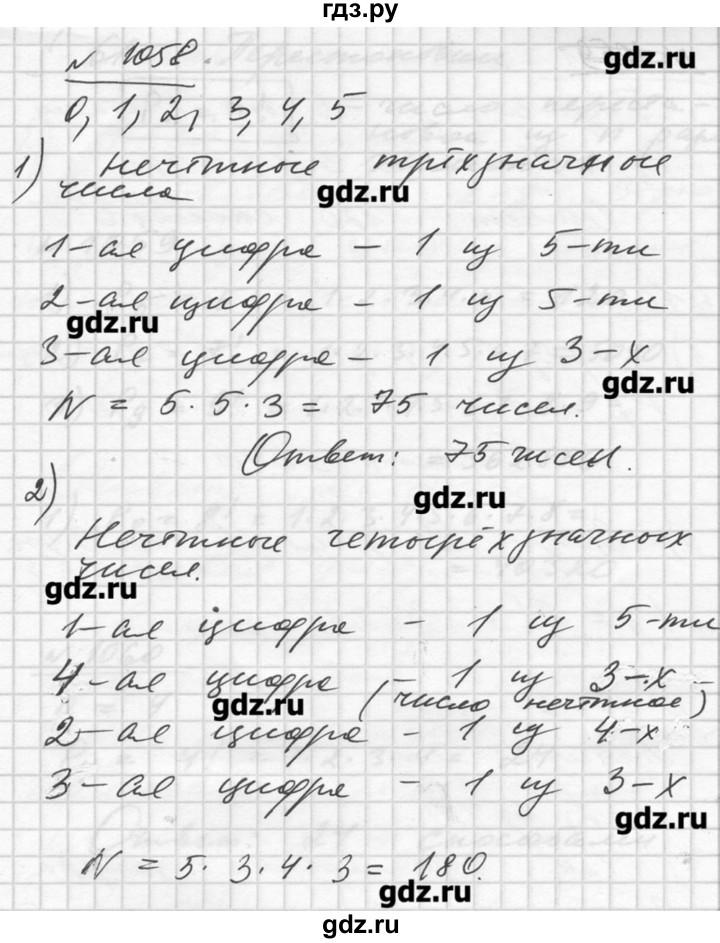 гдз.ру
№ 1058.
gdz.ru
0, 1, 2, 3, 4, 5
1) нечётные трёхзначные
числа
gdz.ru
1-ая цифра – 1 из 5-ти
2-ая цифра – 1 из 5-ти
gdz.ru
3-ая цифра – 1 из 3-х
gdz.ru
N = 5 · 5 · 3 = 75 чисел.
Ответ: 75 чисел.
2)
gdz.ru
Нечётные четырёхзначных
чисел.
gdz.ru
1-ая цифра – 1 из 5-ти
4-ая цифра – 1 из 3-х
gdz.ru
(число нечётное)
2-ая цифра – 1 из 4-х
3-ая цифра – 1 из 3-х
gdz.ru
N = 5 · 3 · 4 · 3 = 180.
gdz.ru
gdz.ru